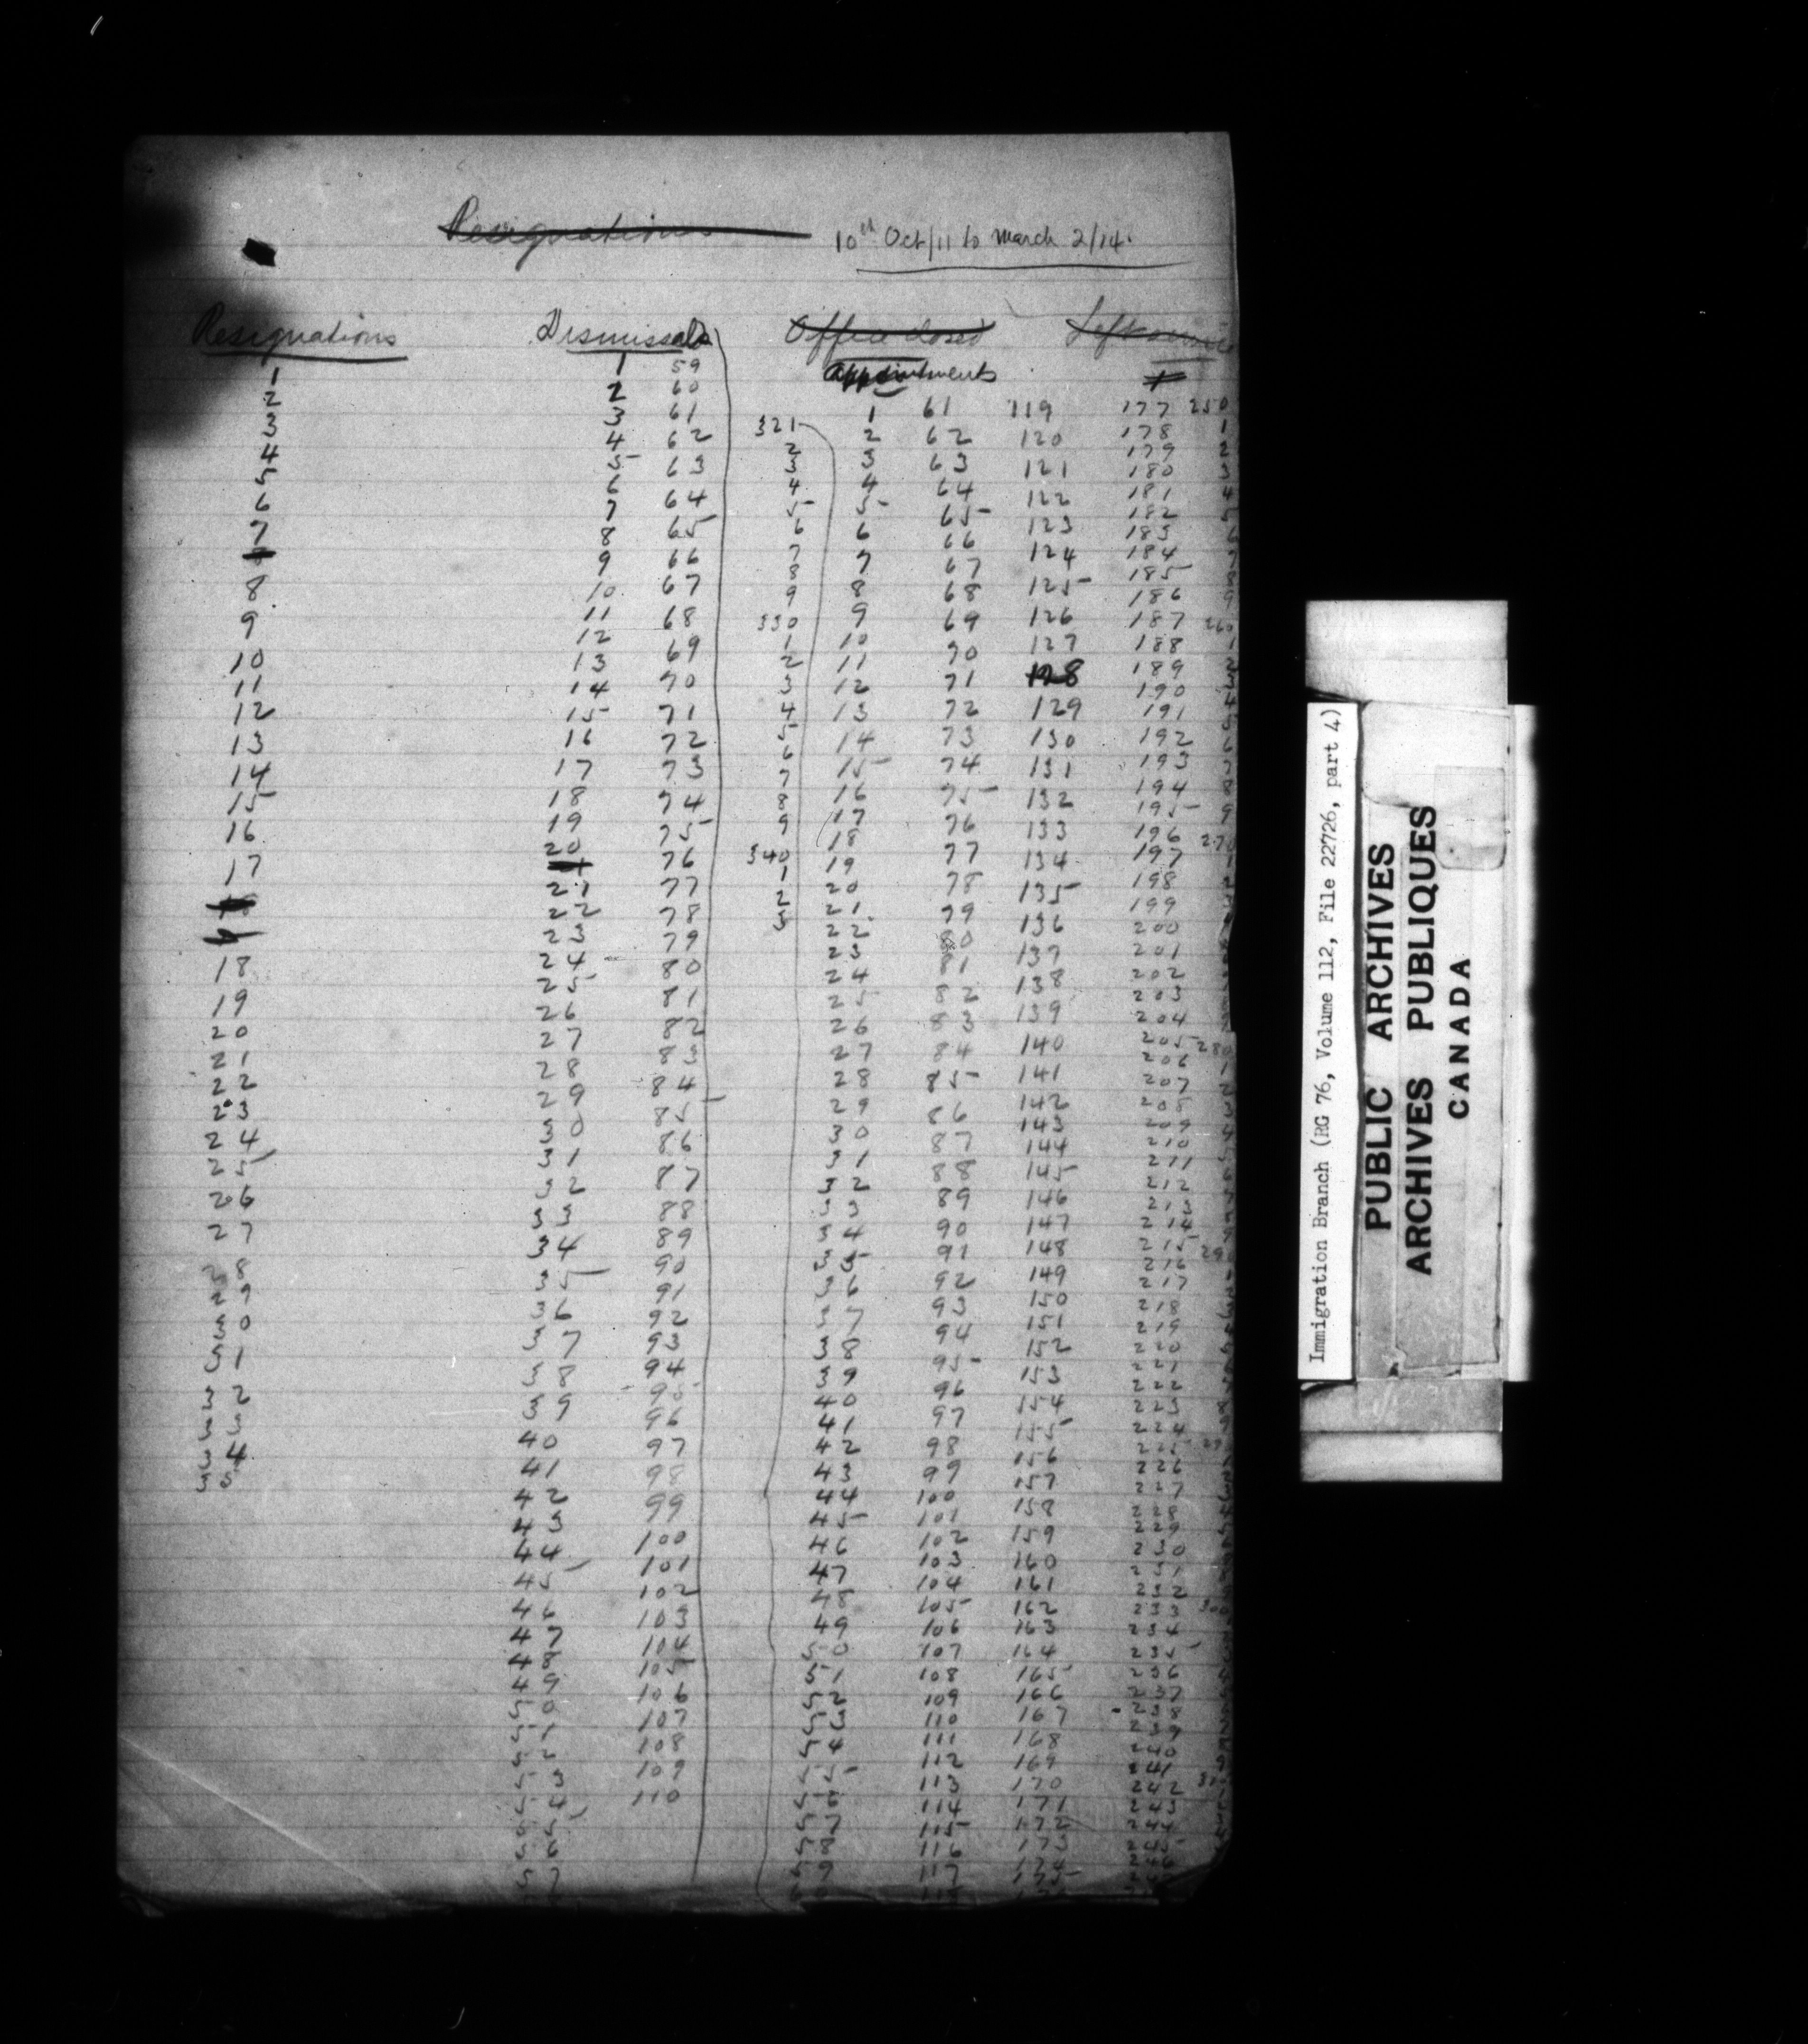 Resignations
10th Oct/11 to March 2/14.
Resignations
1
2
3
4
5
6
7
8
9
10
11
12
13
14
15
16
17
18
19
20
21
22
23
24
25
26
27
28
29
30
31
32
33
34
35
Dismissals
1 59
2 60
3 61
4 62
5 63
6 64
7 65
8 66
9 67
10 68
11 69
12 70
13 71
14 72
15 73
16 74
17 75
18 76
19 77
20 78
21 79
22 80
23 81
24 82
25 83
26 84
27 85
28 86
29 87
30 88
31 89
32 90
33 91
34 92
35 93
36 94
37 95
38 96
39 97
40 98
41 99
42 100
43 101
44 102
45 103
46 104
47 105
48 106
49 107
50 108
51 109
52 110
53
54
55
56
57
Office closed
Appointments
321
2
3
4
5
6
7
8
9
330
1
2
3
4
5
6
7
8
9
340
1
2
3
1 61 119
2 62 120
3 63 121
4 64 122
5 65 123
6 66 124
7 67 125
8 68 126
9 69 127
10 70 128
11 71 129
12 72 130
13 73 131
14 74 132
15 75 133
16 76 134
17 77 135
18 78 136
19 79 137
20 80 138
21 81 139
22 82 140
23 83 141
24 84 142
25 85 143
26 86 144
27 87 145
28 88 146
29 89 147
30 90 148
31 91 149
32 92 150
33 93 151
34 94 152
35 95 153
36 96 154
37 97 155
38 98 156
39 99 157
40 100 158
41 101 159
42 102 160
43 103 161
44 104 162
45 105 163
46 106 164
47 107 165
48 108 166
49 109 167
50 110 168
51 111 169
52 112 170
53 113 171
54 114 172
55 115 173
56 116 174
57 117 175
58
59
Left
177 250
178 1
179 2
180 3
181 4
182 5
183 6
184 7
185 8
186 9
187 260
188 1
189 2
190
191
192 6
193
194 8
195 9
196 270
197 1
198 2
199
200
201
202
203
204
205 280
206 1
207 2
208 3
209 4
210
211
212
213
214
215 29
216
217
218
219
220
221
222
223
224
225
226
227
228
229
230
231
232
233 300
234
235
236
237
238
239
240
241
242
243
244
245
Immigration Branch (RG 76, Volume 112, File 22726, part 4)
PUBLIC ARCHIVES
ARCHIVES PUBLIQUES
CANADA